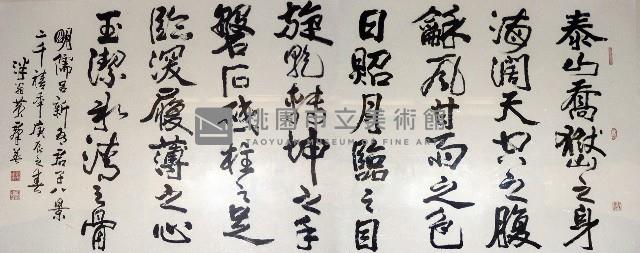 泰山喬嶽之身
海濶天空之腹
龢風甘雨之色
日照月臨之目
旋乾轉坤之手
磐石砥柱之足
臨深履薄之心
玉潔冰清之骨
明儒呂新吾君子八景
二千禧年庚辰之春
桃園市立美術館
TAOYUAN MUSEUM OF FINE ART